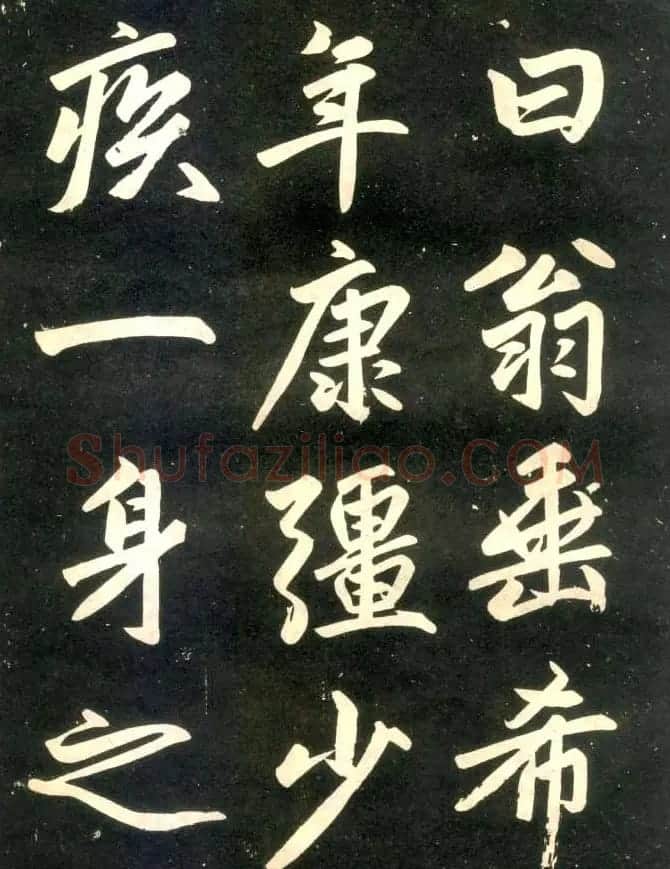 曰翁垂希
年康彊少
疾一身之
Shufaziliao.COM